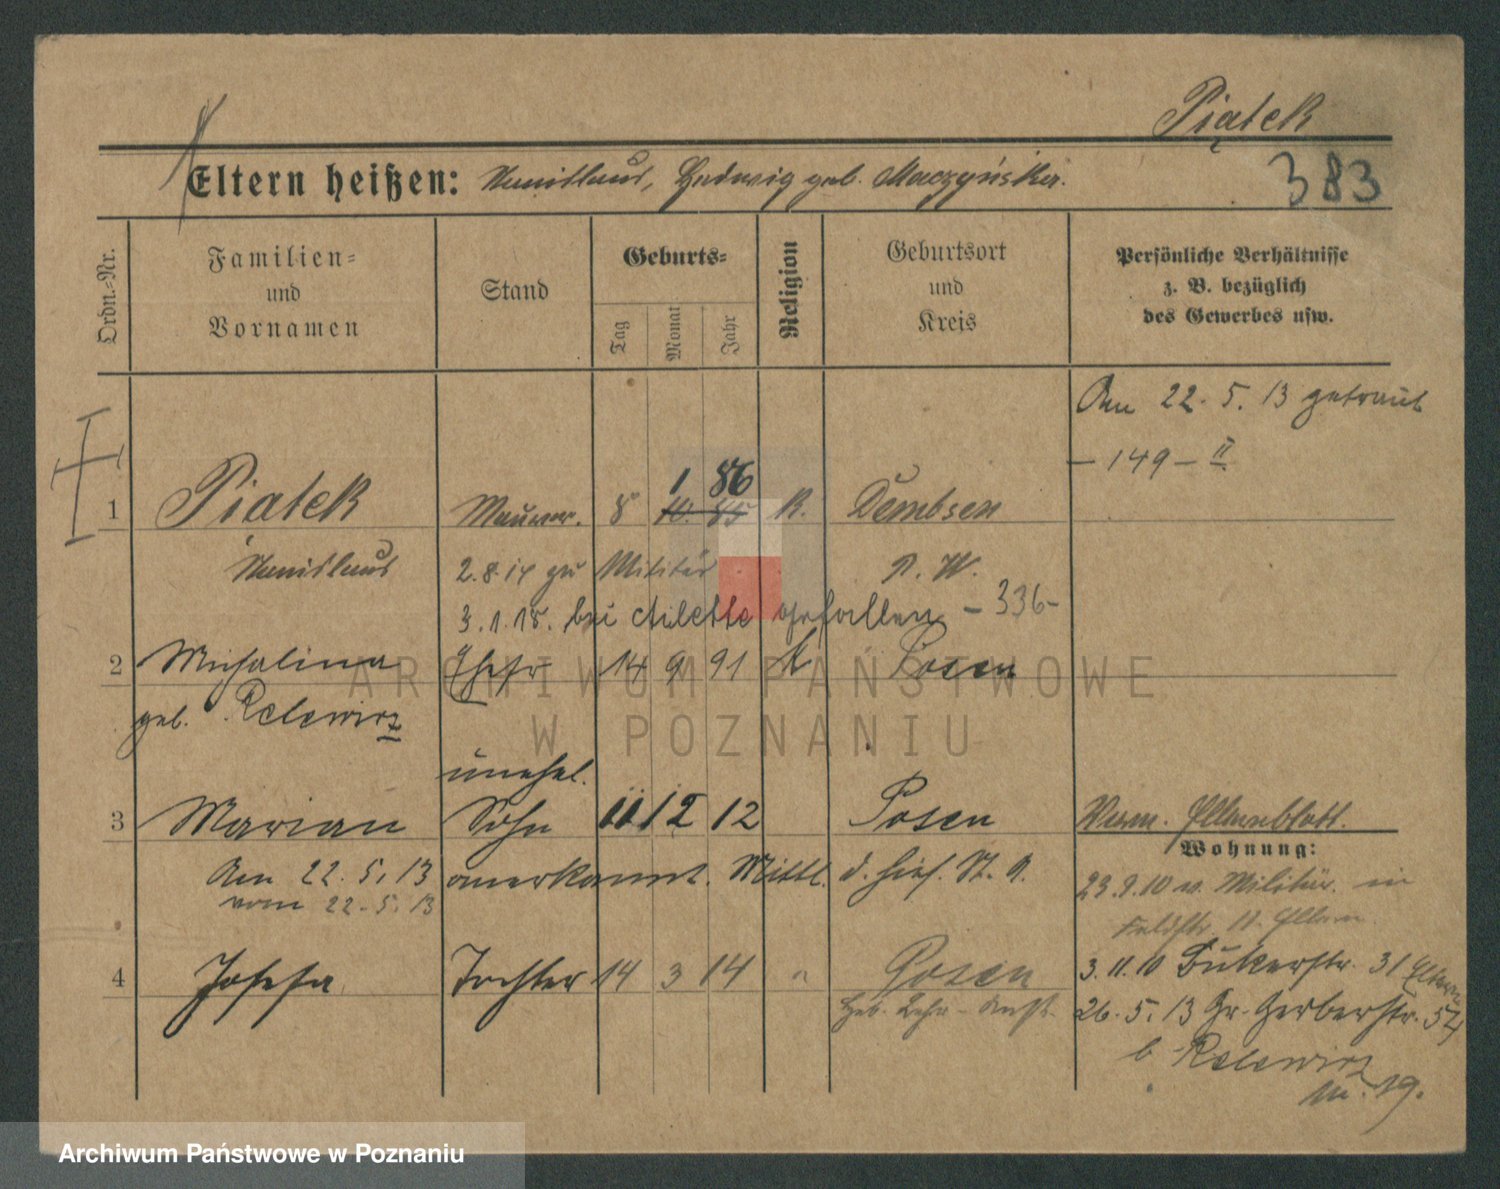 Piątek
383
Eltern heißen: Stanislaus, Hedwig geb. Maczyńska.
Ordn.-Nr.
Familien-
und
Vornamen
Stand
Geburts-
Tag
Monat
Jahr
Religion
Geburtsort
und
Kreis
Persönliche Verhältnisse
z. B. bezüglich
des Gewerbes usw.
Am 22. 5. 13 getraut
- 149 - II
1 86
1 Piatek Maurer. 8 10. 85 K. Dembsen
Stanislaus 2.8.14 zu Militär P. W.
3.1.15. bei gefallen - 336 -
2 Michalina Ehefr 14 9 91 K Posen
geb. Relewicz
unehel.
3 Marian Sohn 11 12 12 Posen
Elternblatt.
Wohnung:
Am 22. 5. 13 anerkannt. Mittl. d. hies. St. A.
vom 22. 5. 13
23.9.10 v. Militär. in
Eltern
4 Josefa Tochter 14 3 14 " Posen
Heb. Lehr-Anst.
3.11.10 Bukerstr. 31 Eltern
26. 5. 13 Gr. Gerberstr. 54
b Relewicz
19.
ARCHIWUM PAŃSTWOWE
W POZNANIU
Archiwum Państwowe w Poznaniu